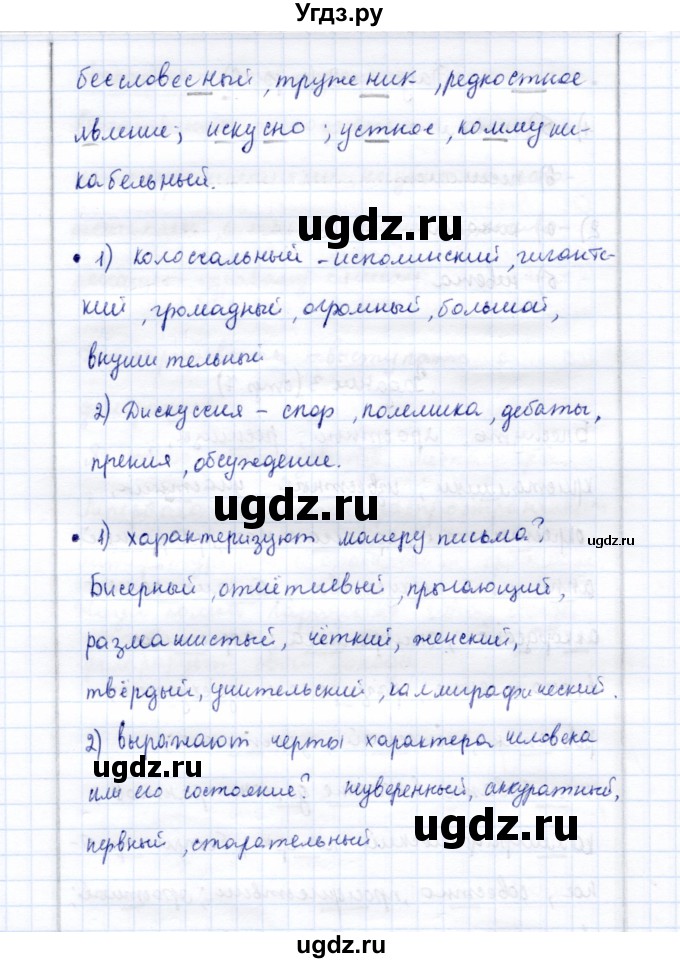 Угдз.ру
бессловесный, труженик, редкостное
явление; искусно; устное, коммуни-
кабельный.
ugdz.ru
• 1) колоссальный - исполинский, гигантс-
кий, громадный, огромный, большой,
внушительный
2) Дискуссия - спор, полемика, дебаты,
прения, обсуждение.
ugdz.ru
• 1) характеризуют манеру письма?
ugdz.ru
Бисерный, отчётливый, прыгающий,
размашистый, чёткий, женский,
твёрдый, учительский, каллиграфический.
2) выражают черты характера человека
ugdz.ru
или его состояние? неуверенный, аккуратный,
нервный, старательный
ugdz.ru
ugdz.ru